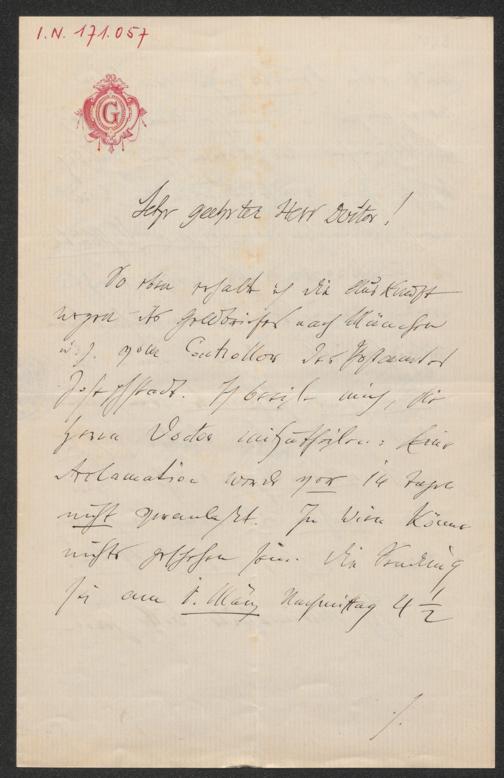 I.N. 171.057
G
Sehr geehrter Herr Doctor!
So eben erhalte ich die Auskunft
wegen des Geldbriefes nach München
u. z. vom Controllor des Postamtes
Josefstadt. Ich beeile mich, sie
Herrn Doctor mitzutheilen: Eine
Reclamation werde vor 14 Tagen
nicht veranlaßt. In Wien könne
nichts geschehen sein. Die Sendung
sei am 1. März Nachmittag 4 1/2
./.